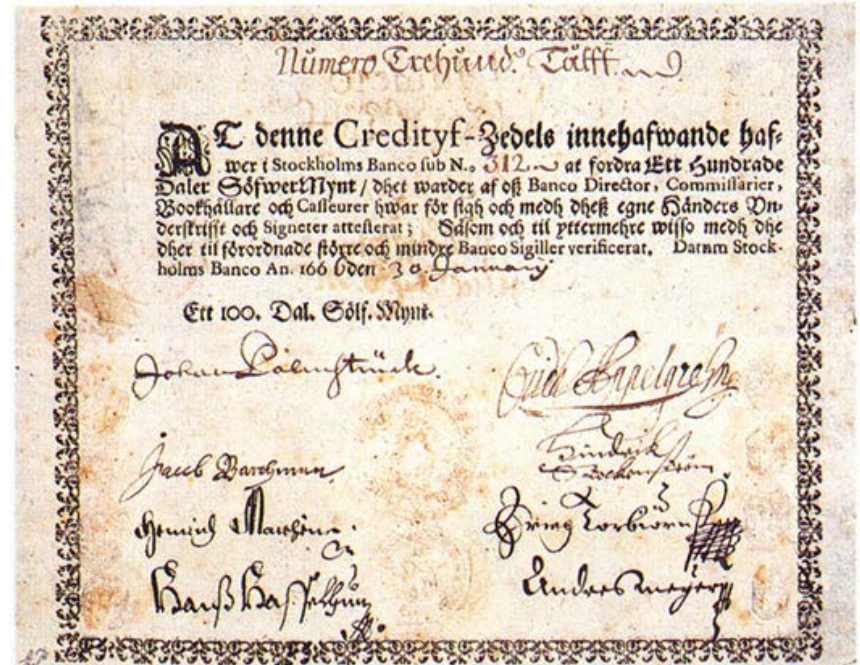 Numero Trehund. Tålff
AT denne Credityf-Zedels innehafwande haf-
wer i Stockholms Banco sub N.o 312 at fordra Ett Hundrade
Daler SölfwerMynt / dhet warder af oß Banco Director, Commissarier,
Bookhållare och Casseurer hwar för sigh och medh dheß egne Händers Vn-
derskrifft och Signeter attesterat; Såsom och til yttermehre wisso medh dhe
dher til förordnade större och mindre Banco Sigiller verificerat. Datum Stock-
holms Banco An. 1666 den 30. January
Ett 100. Dal. Sölf. Mynt.
Johan Palmstruck.
Jacob Barchman
Hinrik
Hans
Anders Meyer